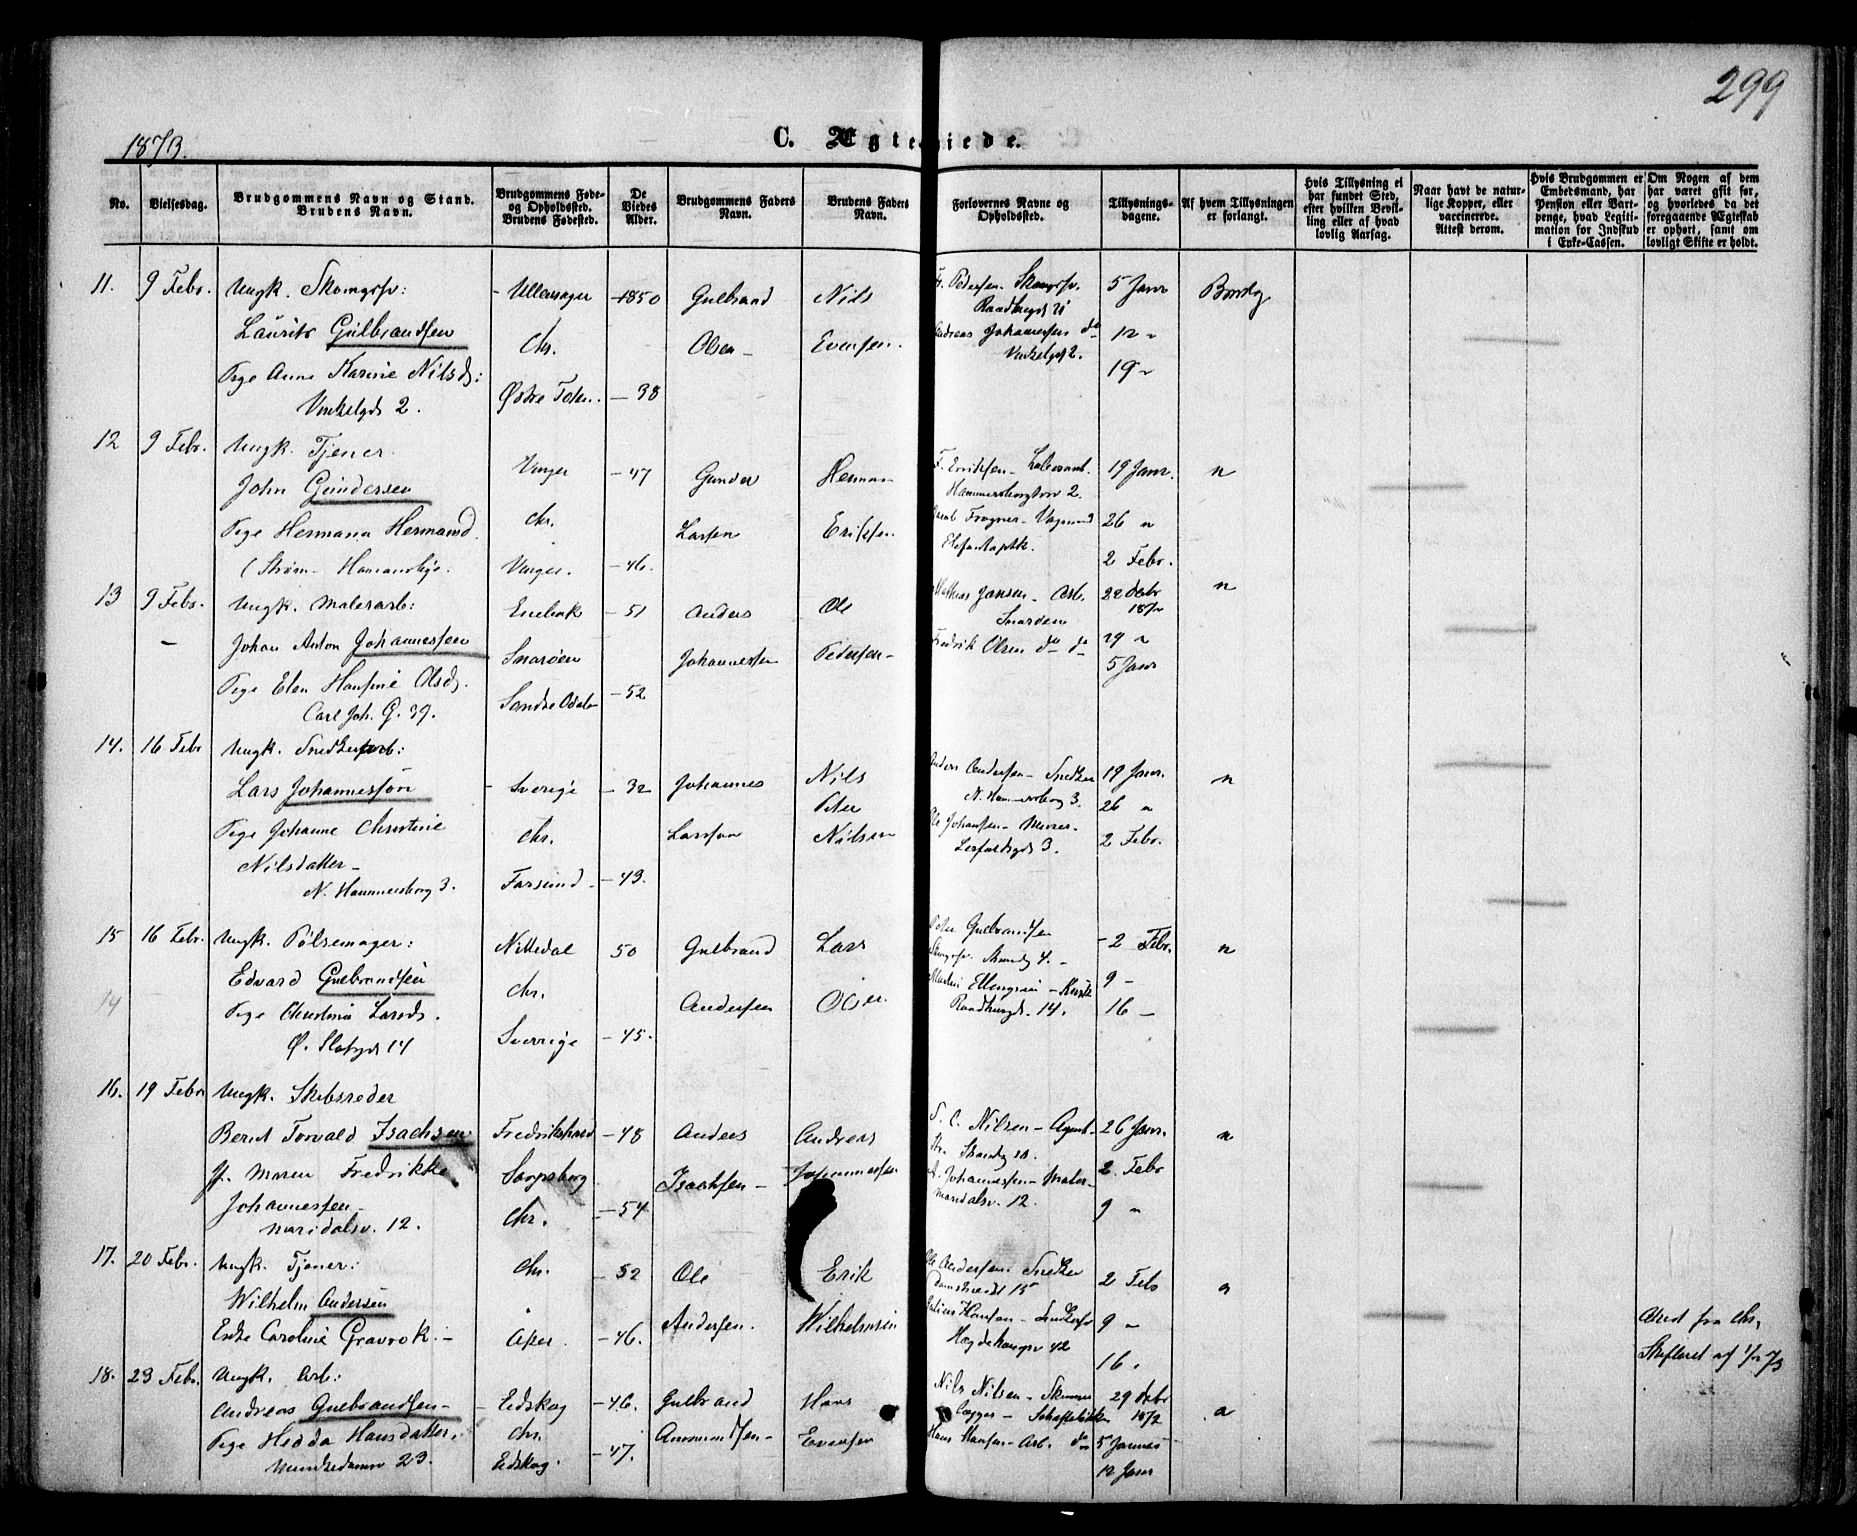 299
1873.
C. Ægteviede.
No.
Vielsesdag.
Brudgommens Navn og Stand.
Brudens Navn.
Brudgommens Føde-
og Opholdssted.
Brudens Fødested.
De
Viedes
Alder.
Brudgommens Faders
Navn.
Brudens Faders
Navn.
Forlovernes Navne og
Opholdssted.
Tillysnings-
dagene.
Af hvem Tillysningen
er forlangt.
Hvis Tillysning ei
har fundet Sted,
efter hvilken Bevil-
ling eller af hvad
lovlig Aarsag.
Naar havt de natur-
lige Kopper, eller
vaccinerede.
Attest derom.
Hvis Brudgommen er
Embedsmand, har
Pension eller Vart-
penge, hvad Legiti-
mation for Indskud
i Enke-Cassen.
Om Nogen af dem
har været gift før,
og hvorledes da det
foregaaende Ægteskab
er ophørt, samt om
lovligt Skifte er holdt.
11. 9 Febr. Ungk. Skomgrsv: Ullensager 1850 Gulbrand Nils Pedersen Skomgrsv. 5 Janr
Laurits Gulbrandsen Chr. Olsen Evensen. Andreas Johannesen do 12 "
Pige Anne Karine Nilsd: Østre Toten. 38 19 "
Vinkelgd 2.
12 9 Febr. Ungk. Tjener. Vinger 47 Gunder Herman F. Eriksen 19 Janr. "
John Gundersen Hammersborgtorv 2.
Pige Hermana Hermansd. Chr. Larsen Eriksen Elefantaptk. 26 "
(Strøm Vinger. 46. 2 Febr.
13 9 Febr. Ungk. Malerarb: Enebak 51 Anders Ole Mathias Jansen Arb. 22 Debr 1872 "
Johan Anton Johannessen Snarøen Johannessen Pedersen Snarøen
Fredrik Olsen do do 29 "
Pige Elen Hansine Olsd. Søndre Odalen 52 5 Janr
Carl Joh. G. 39.
14. 16 Febr Ungk. Snedkerarb:
Lars Johannesson Sverige 32 Johannes Nils Anders Andersen Snedker 19 Janr. "
Peter N. Hammersborg 3. 26 "
Pige Johanne Christine Chr. Larsson Nilsen Ole Johansen Murer 2 Febr.
Nilsdatter
N. Hammersborg 3. Farsund 43.
15 16 Febr. Ungk. Pølsemager: Nittedal 50 Gulbrand Lars Peter Gulbrandsen 2 Febr. "
Edvard Gulbrandsen Chr. Andersen Olsen 9
14 Pige Christine Larsd. Raadhusgd. 14. 16
Ø. Slotsgd 14 Sverrige 45.
16. 19 Febr Ungk. Skibsreder
Bernt Torvald Isachsen Fredrikshald 48 Anders Andreas S. C. Nilsen Agent 26 Janr. "
Fr. Maren Fredrikke Sarpsborg Isachsen Johannessen Johannessen Maler 2 Febr
Johannessen Chr. 54 Maridalsv. 12. 9 "
Maridalsv. 12.
17. 20 Febr. Ungk. Tjener: Chr. 52 Ole Erik Ole Andersen Snedker 2 Feb
Wilhelm Andersen Damstrædet 15
Enke Caroline Gravrok Aker 46. Andersen. Wilhelmsen Julius Hansen 9 "
Hægdehaugsv 42 16.
Attest fra Chr.
Skifteret af 1/2 73
18. 23 Febr. Ungk. Arb:
Andreas Gulbrandsen Eidskog 46. Gulbrand Hans Nils Nilsen 29 Debr 1872
Pige Hedda Hansdatter. Chr. Amundsen Evensen Hans Hansen Arb. do 5 Januar
Munkedamsv 23. Eidskog. 47. 12 Janr